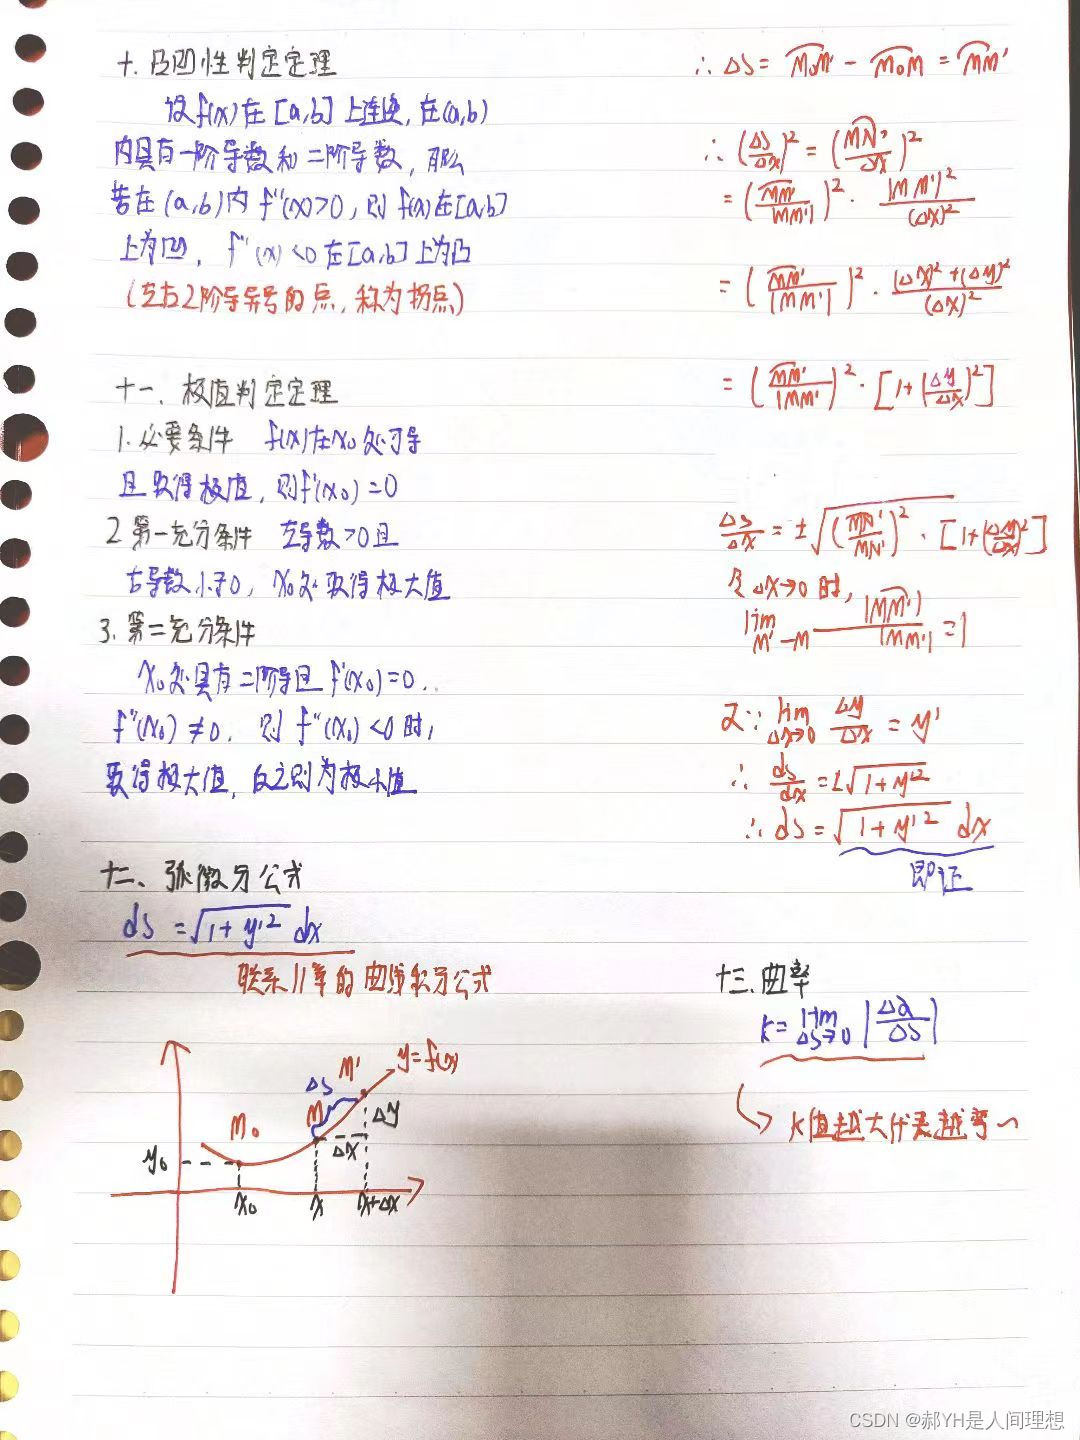 十. 凸凹性判定定理
设f(x)在[a,b]上连续,在(a,b)
内具有一阶导数和二阶导数,那么
若在(a,b)内 f''(x)>0,则 f(x)在[a,b]
上为凹, f''(x)<0在[a,b]上为凸
(左右2阶导异号的点,称为拐点)
十一、极值判定定理
1. 必要条件 f(x)在x₀处可导
且取得极值,则f'(x₀)=0
2 第一充分条件 左导数>0且
右导数小于0, x₀处取得极大值
3. 第二充分条件
x₀处具有二阶导且 f'(x₀)=0.
f''(x₀)≠0. 则 f''(x₀)<0时,
取得极大值,反之则为极小值
十二、弧微分公式
ds=√(1+y'²) dx
联系11章的曲线积分公式
y=f(x)
M'
Δs
M
M₀
Δy
Δx
y₀
x₀ x x+Δx
∴ Δs= M₀M' - M₀M = MM'
∴ (Δs/Δx)² = (MM'/Δx)²
= (MM'/|MM'|)² · |MM'|²/(Δx)²
= (MM'/|MM'|)² · (Δx)²+(Δy)²/(Δx)²
= (MM'/|MM'|)² · [1+(Δy/Δx)²]
Δs/Δx = ±√(MM'/MM')² · [1+(Δy/Δx)²]
Δx→0 时,
lim M'→M |MM'|/|MM'| =1
又∵ lim Δx→0 Δy/Δx = y'
∴ ds/dx = ±√(1+y'²)
∴ ds=√(1+y'²) dx
即证
十三.曲率
K= lim Δs→0 |Δα/Δs|
K值越大代表越弯
CSDN @郝YH是人间理想